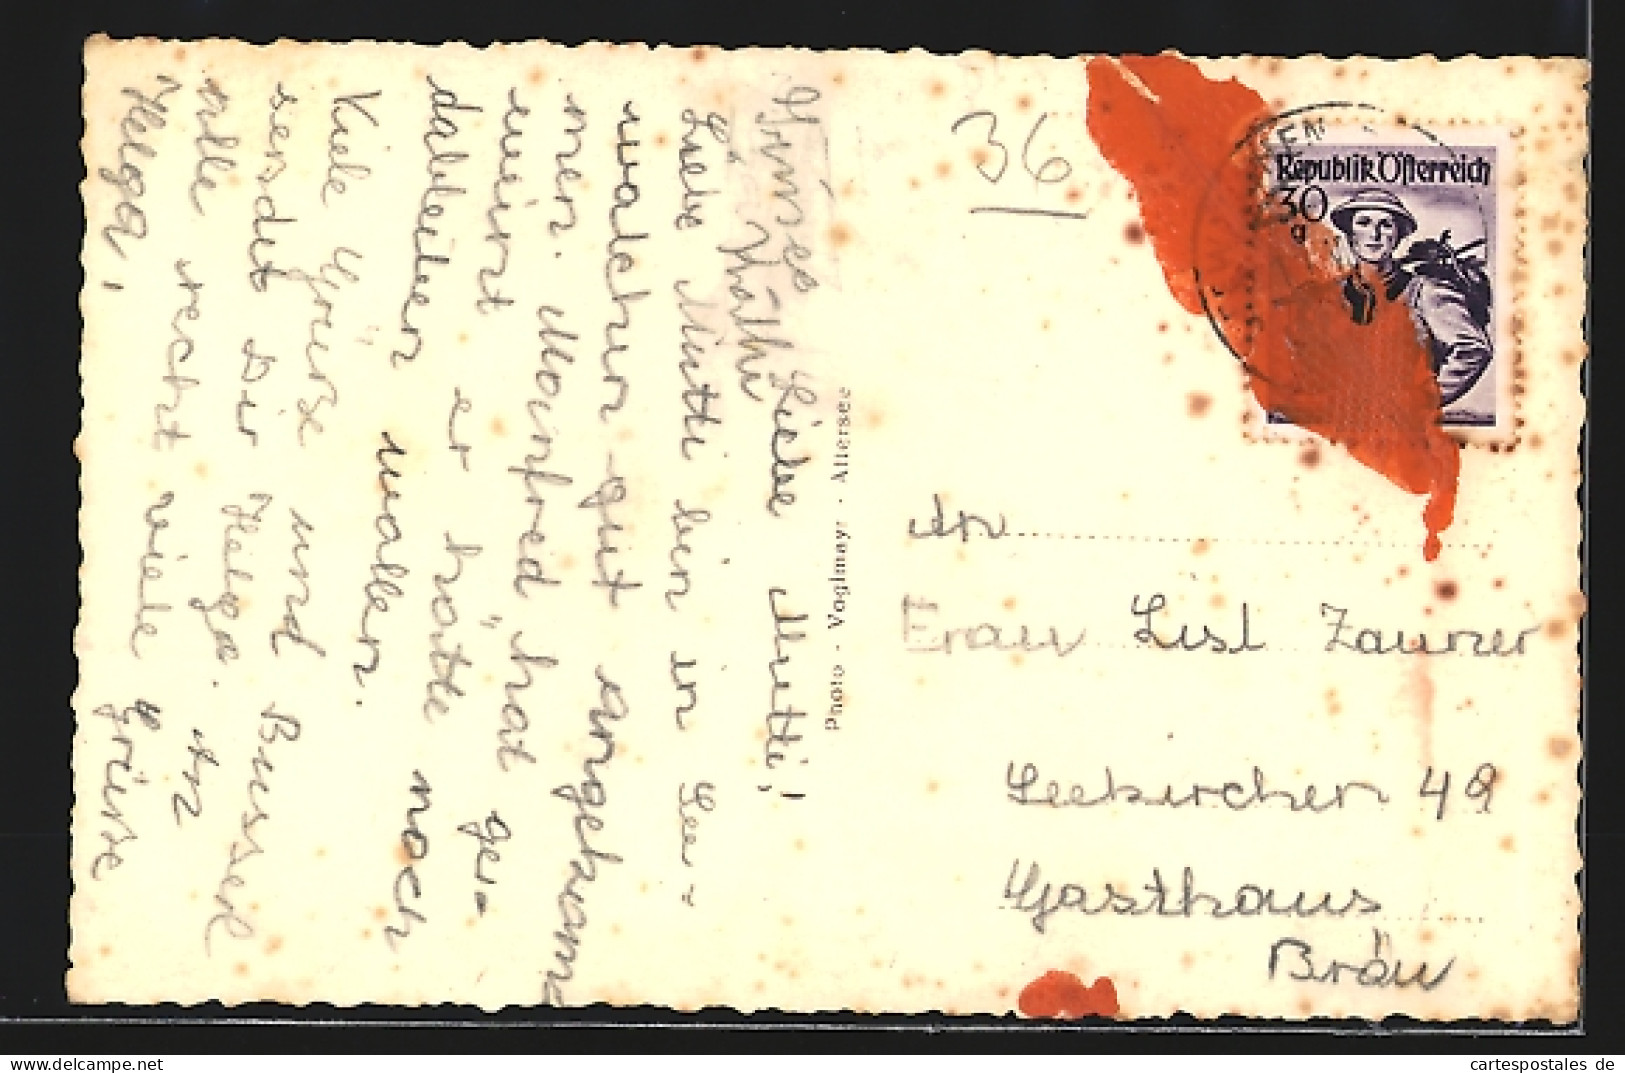 Liebe Mutti!
Liebe Mutti bin in See-
walchen gut angekomm
men. Manfred hat ge-
weint er hätte noch
dableiben wollen.
Viele Grüsse und Busserl
sendet Dir Helga. An
alle recht viele Grüsse
Helga,
Grüsse
Käthi
Photo - Voglmayr - Attersee
36
Republik Österreich
30
g
An
Frau Lisl Zauner
Seekirchen 49
Gasthaus
Bräu
cartespostales de